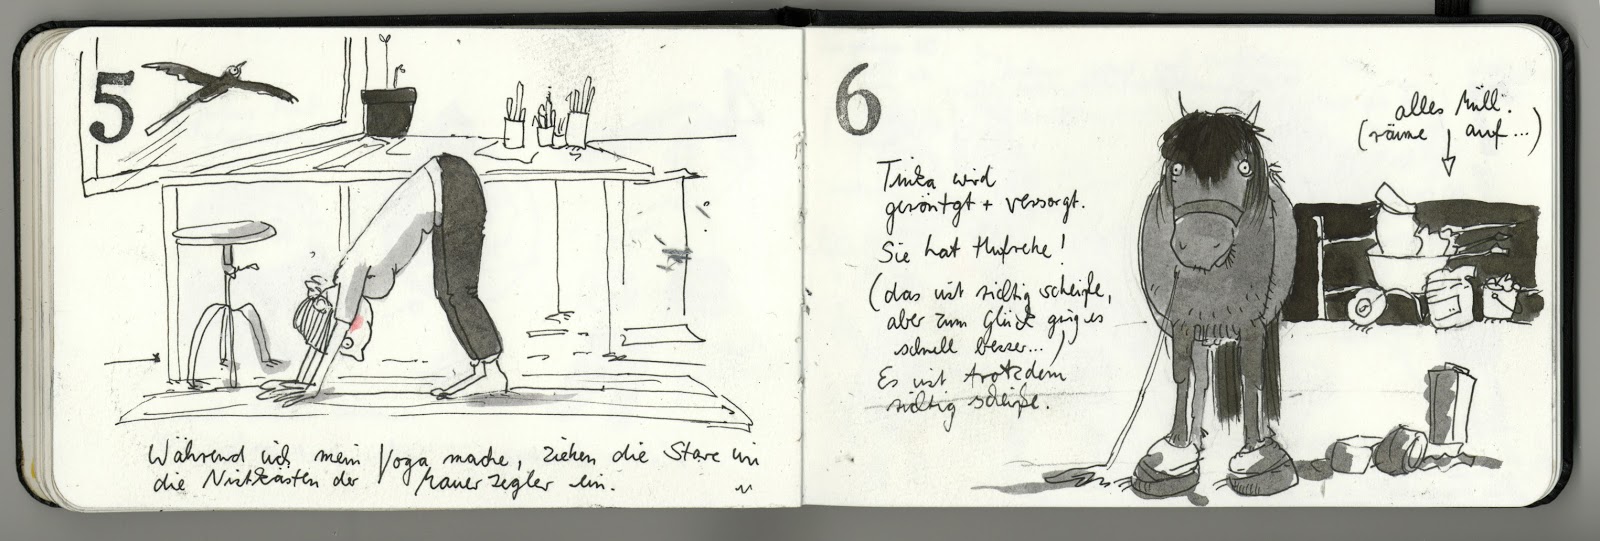 5
Während ich mein Yoga mache, ziehen die Stare in
die Nistkästen der Mauersegler ein.
6
Tinka wird
geröntgt + versorgt.
Sie hat Hufrehe!
(das ist richtig scheiße,
aber zum Glück ging es
schnell besser...)
Es ist trotzdem
richtig scheiße.
alles Müll.
(räume auf...)